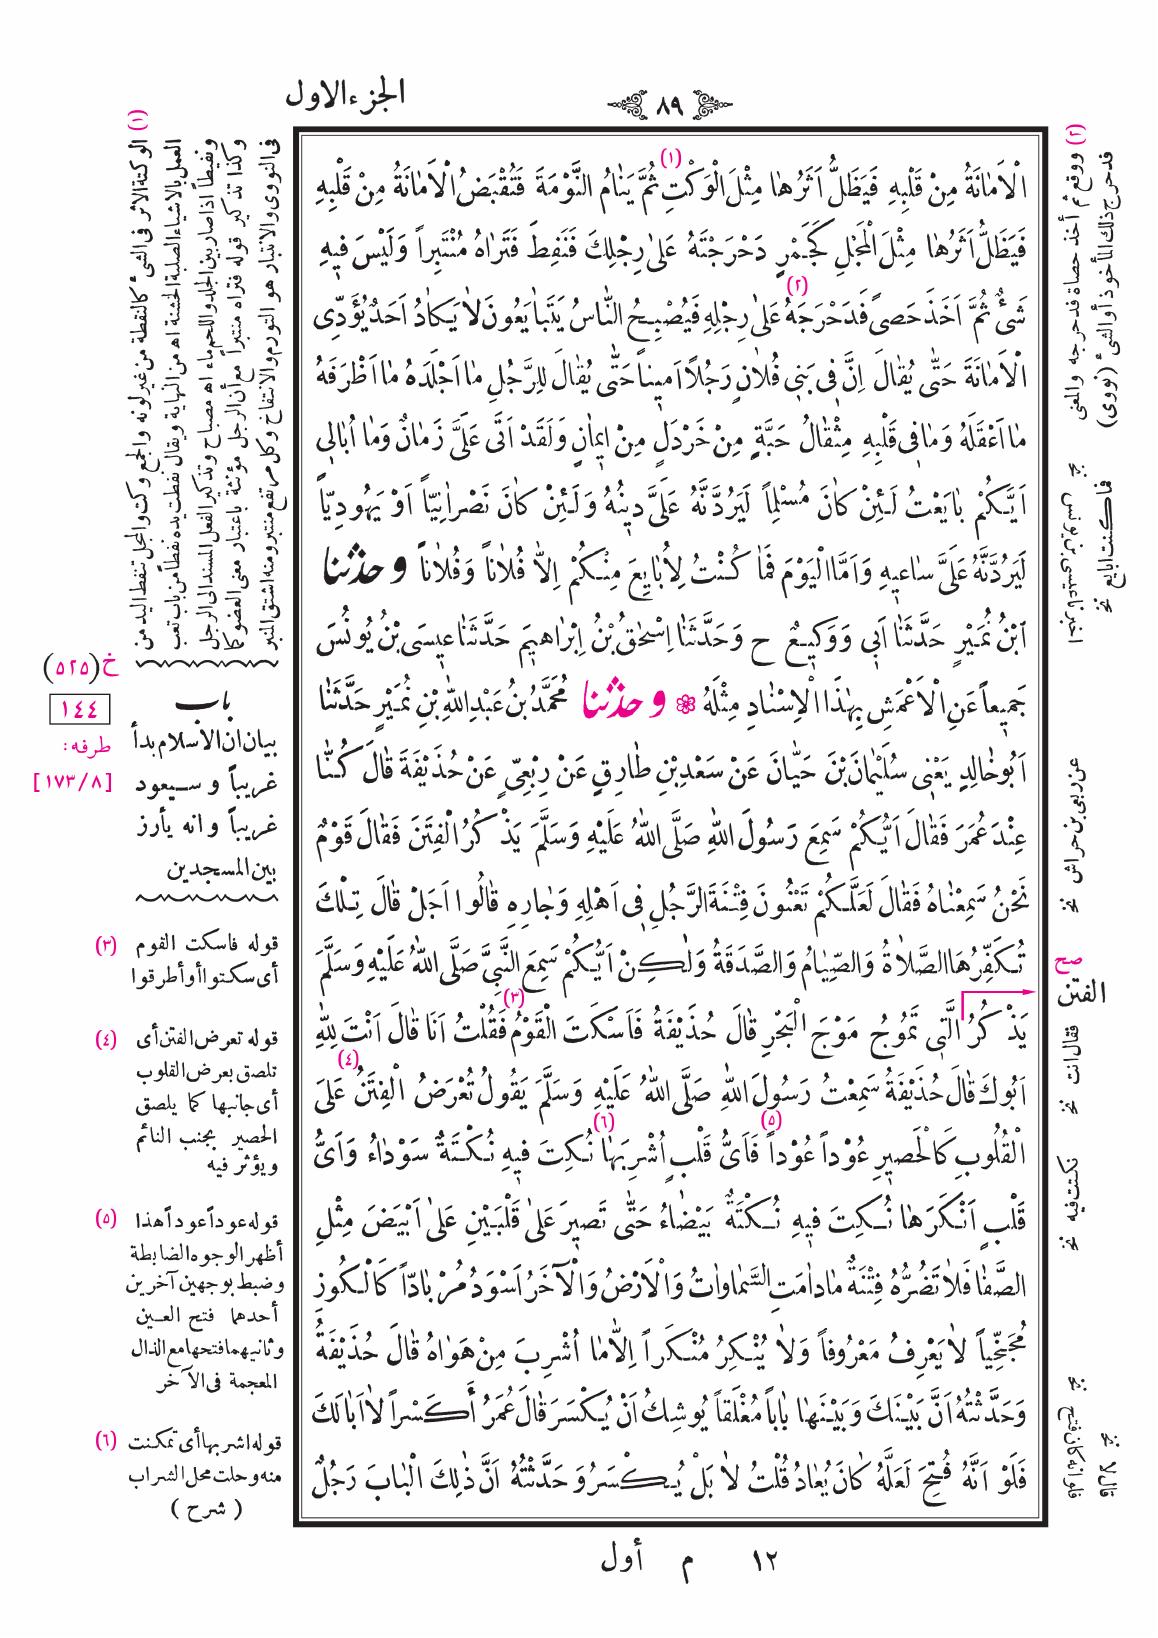 الجزء الاول
٨٩
الْاَمَانَةُ مِنْ قَلْبِهِ فَيَظَلُّ اَثَرُهَا مِثْلَ الْوَكْتِ (١) ثُمَّ يَنَامُ النَّوْمَةَ فَتُقْبَضُ الْاَمَانَةُ مِنْ قَلْبِهِ
فَيَظَلُّ اَثَرُهَا مِثْلَ الْمَجْلِ كَجَمْرٍ دَحْرَجْتَهُ عَلَىٰ رِجْلِكَ فَنَفِطَ فَتَرَاهُ مُنْتَبِراً وَلَيْسَ فِيهِ
شَىْءٌ ثُمَّ اَخَذَ حَصىً فَدَحْرَجَهُ (٢) عَلَىٰ رِجْلِهِ فَيُصْبِحُ النَّاسُ يَتَبَايَعُونَ لَا يَكَادُ اَحَدٌ يُؤَدِّى
الْاَمَانَةَ حَتَّى يُقَالَ اِنَّ فِى بَنِى فُلَانٍ رَجُلاً اَمِيناً حَتَّى يُقَالَ لِلرَّجُلِ مَا اَجْلَدَهُ مَا اَظْرَفَهُ
مَا اَعْقَلَهُ وَمَا فِى قَلْبِهِ مِثْقَالُ حَبَّةٍ مِنْ خَرْدَلٍ مِنْ اِيمَانٍ وَلَقَدْ اَتَى عَلَىَّ زَمَانٌ وَمَا اُبَالِى
اَيَّكُمْ بَايَعْتُ لَئِنْ كَانَ مُسْلِماً لَيَرُدَّنَّهُ عَلَىَّ دِينُهُ وَلَئِنْ كَانَ نَصْرَانِيّاً اَوْ يَهُودِيّاً
لَيَرُدَّنَّهُ عَلَىَّ سَاعِيهِ وَاَمَّا الْيَوْمَ فَمَا كُنْتُ لِاُبَايِعَ مِنْكُمْ اِلَّا فُلَاناً وَفُلَاناً وحدثنا
ابْنُ نُمَيْرٍ حَدَّثَنَا اَبِى وَوَكِيعٌ ح وَحَدَّثَنَا اِسْحٰقُ بْنُ اِبْرَاهِيمَ حَدَّثَنَا عِيسَى بْنُ يُونُسَ
جَمِيعاً عَنِ الْاَعْمَشِ بِهٰذَا الْاِسْنَادِ مِثْلَهُ ❁ وحدثنا مُحَمَّدُ بْنُ عَبْدِ اللّٰهِ بْنِ نُمَيْرٍ حَدَّثَنَا
اَبُو خَالِدٍ يَعْنِى سُلَيْمَانَ بْنَ حَيَّانَ عَنْ سَعْدِ بْنِ طَارِقٍ عَنْ رِبْعِىٍّ عَنْ حُذَيْفَةَ قَالَ كُنَّا
عِنْدَ عُمَرَ فَقَالَ اَيُّكُمْ سَمِعَ رَسُولَ اللّٰهِ صَلَّى اللّٰهُ عَلَيْهِ وَسَلَّمَ يَذْكُرُ الْفِتَنَ فَقَالَ قَوْمٌ
نَحْنُ سَمِعْنَاهُ فَقَالَ لَعَلَّكُمْ تَعْنُونَ فِتْنَةَ الرَّجُلِ فِى اَهْلِهِ وَجَارِهِ قَالُوا اَجَلْ قَالَ تِلْكَ
تُكَفِّرُهَا الصَّلَاةُ وَالصِّيَامُ وَالصَّدَقَةُ وَلٰكِنْ اَيُّكُمْ سَمِعَ النَّبِىَّ صَلَّى اللّٰهُ عَلَيْهِ وَسَلَّمَ
يَذْكُرُ الَّتِى تَمُوجُ مَوْجَ الْبَحْرِ قَالَ حُذَيْفَةُ فَاَسْكَتَ الْقَوْمُ (٣) فَقُلْتُ اَنَا قَالَ اَنْتَ لِلّٰهِ
اَبُوكَ قَالَ حُذَيْفَةُ سَمِعْتُ رَسُولَ اللّٰهِ صَلَّى اللّٰهُ عَلَيْهِ وَسَلَّمَ يَقُولُ تُعْرَضُ الْفِتَنُ (٤) عَلَى
الْقُلُوبِ كَالْحَصِيرِ عُوْداً عُوْداً (٥) فَاَىُّ قَلْبٍ اُشْرِبَهَا (٦) نُكِتَ فِيهِ نُكْتَةٌ سَوْدَاءُ وَاَىُّ
قَلْبٍ اَنْكَرَهَا نُكِتَ فِيهِ نُكْتَةٌ بَيْضَاءُ حَتَّى تَصِيرَ عَلَىٰ قَلْبَيْنِ عَلَىٰ اَبْيَضَ مِثْلِ
الصَّفَا فَلَا تَضُرُّهُ فِتْنَةٌ مَادَامَتِ السَّمَاوَاتُ وَالْاَرْضُ وَالْآخَرُ اَسْوَدُ مُرْبَادّاً كَالْكُوزِ
مُجَخِّياً لَا يَعْرِفُ مَعْرُوفاً وَلَا يُنْكِرُ مُنْكَراً اِلَّا مَا اُشْرِبَ مِنْ هَوَاهُ قَالَ حُذَيْفَةُ
وَحَدَّثْتُهُ اَنَّ بَيْنَكَ وَبَيْنَهَا بَاباً مُغْلَقاً يُوشِكُ اَنْ يُكْسَرَ قَالَ عُمَرُ أَكَسْراً لَا اَبَا لَكَ
فَلَوْ اَنَّهُ فُتِحَ لَعَلَّهُ كَانَ يُعَادُ قُلْتُ لَا بَلْ يُكْسَرُ وَحَدَّثْتُهُ اَنَّ ذٰلِكَ الْبَابَ رَجُلٌ
(١) الوكتة الاثر فى الشئ كالنقطة من غير لونه والجمع وكت والمجل تنفط اليد من
العمل بالاشياء الصلبة الخشنة اه من النهاية ويقال نفطت يده نفطاً من باب تعب
ونفيطاً اذا صار بين الجلد واللحم ماء اه مصباح وتذكير الفعل المسند الى الرجل
وكذا تذكير قوله فتراه منتبراً مع أن الرجل مؤنثة باعتبار معنى العضو كما
فى النووى والانتبار هو التورم والانتفاخ وكل مرتفع منتبر ومنه اشتق المنبر
خ (٥٢٥)
١٤٤
طرفه:
[١٧٣/٨]
باب
بيان ان الاسلام بدأ
غريباً وسيعود
غريباً وانه يأرز
بين المسجدين
(٣) قوله فاسكت القوم
أى سكتوا أو أطرقوا
(٤) قوله تعرض الفتن أى
تلصق بعرض القلوب
أى جانبها كما يلصق
الحصير بجنب النائم
ويؤثر فيه
(٥) قوله عوداً عوداً هذا
أظهر الوجوه الضابطة
وضبط بوجهين آخرين
أحدهما فتح العين
وثانيهما فتحها مع الذال
المعجمة فى الآخر
(٦) قوله اشربها أى تمكنت
منه وحلت محل الشراب
( شرح )
(٢) ووقع ثم أخذ حصاة فدحرجه والمعنى
فدحرج ذلك المأخوذ أو الشئ (نووى)
فما كنت ابايع نخ
عن ربعى بن حراش نخ
صح
الفتن
فقال انت نخ
نكتت فيه نخ
١٢ م أول